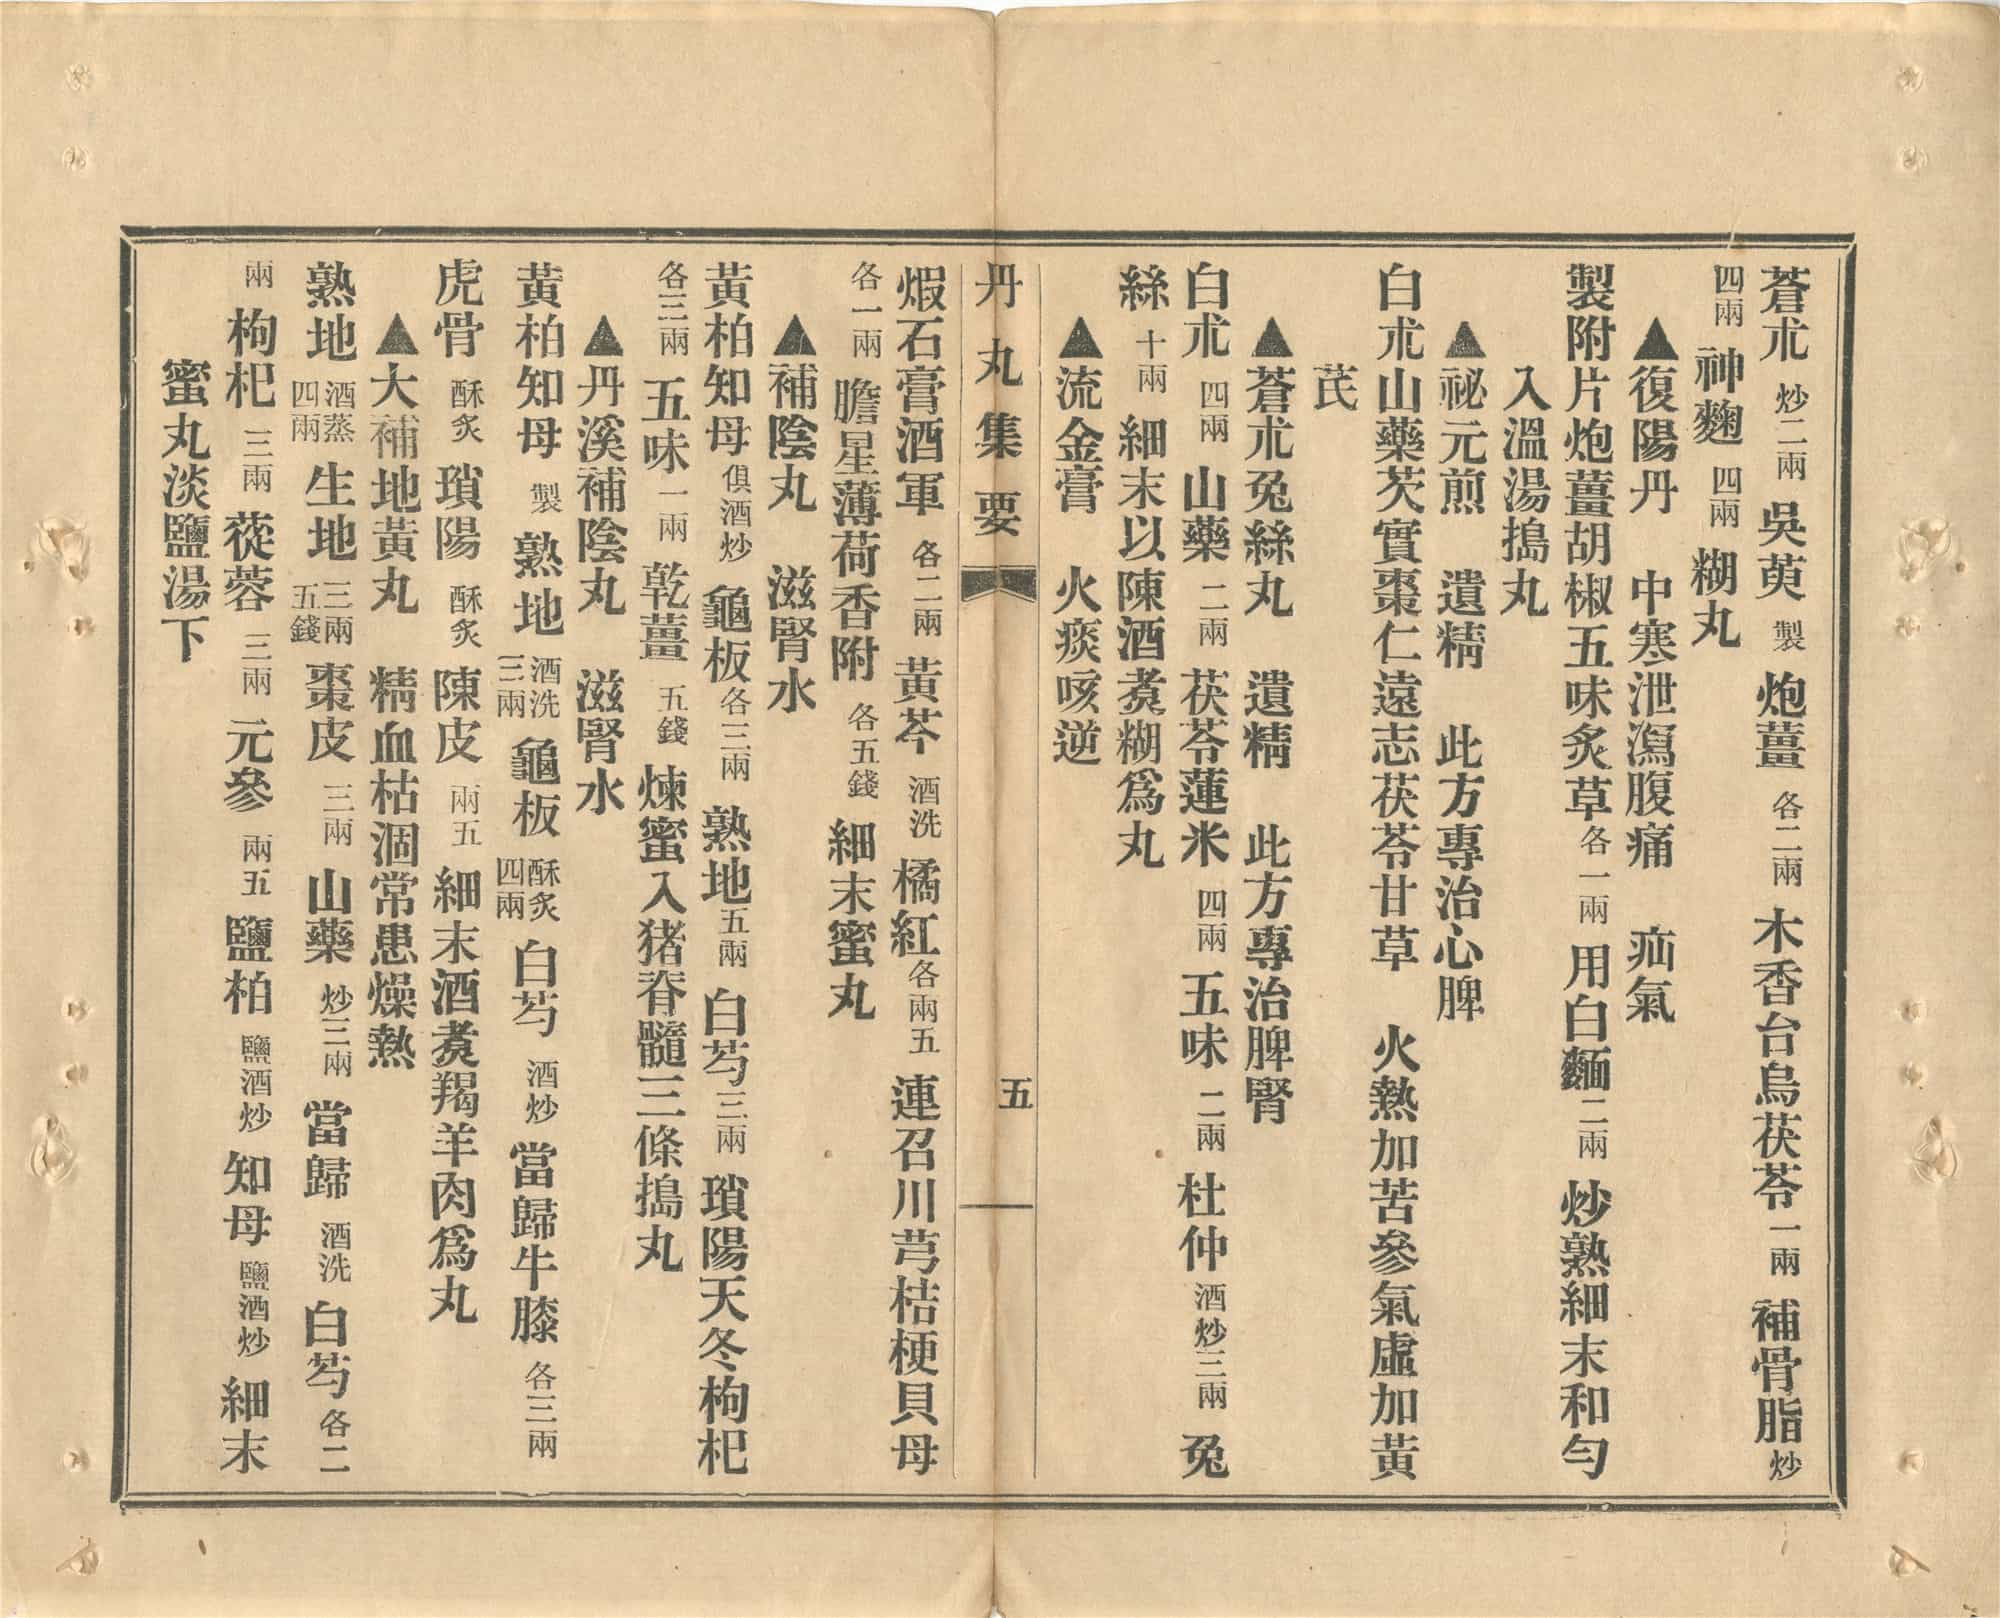 蒼朮炒二兩吳萸製炮薑各二兩木香台烏茯苓一兩補骨脂炒
四兩神麴四兩糊丸
▲復陽丹　中寒泄瀉腹痛　疝氣
製附片炮薑胡椒五味炙草各一兩用白麵二兩炒熟細末和勻
入溫湯搗丸
▲祕元煎　遺精　此方專治心脾
白朮山藥芡實棗仁遠志茯苓甘草　火熱加苦參氣虛加黃
芪
▲蒼朮兔絲丸　遺精　此方專治脾腎
白朮四兩山藥二兩茯苓蓮米四兩五味二兩杜仲酒炒三兩兔
絲十兩細末以陳酒煑糊爲丸
▲流金膏　火痰咳逆
丹丸集要　五
煆石膏酒軍各二兩黃芩酒洗橘紅各兩五連召川芎桔梗貝母
各一兩膽星薄荷香附各五錢細末蜜丸
▲補陰丸　滋腎水
黃柏知母俱酒炒龜板各三兩熟地五兩白芍三兩瑣陽天冬枸杞
各三兩五味一兩乾薑五錢煉蜜入猪脊髓三條搗丸
▲丹溪補陰丸　滋腎水
黃柏知母製熟地酒洗三兩龜板酥炙四兩白芍酒炒當歸牛膝各三兩
虎骨酥炙瑣陽酥炙陳皮兩五細末酒煑羯羊肉爲丸
▲大補地黃丸　精血枯涸常患燥熱
熟地酒蒸四兩生地三兩五錢棗皮三兩山藥炒三兩當歸酒洗白芍各二
兩枸杞三兩蓯蓉三兩元參兩五鹽柏鹽酒炒知母鹽酒炒細末
蜜丸淡鹽湯下